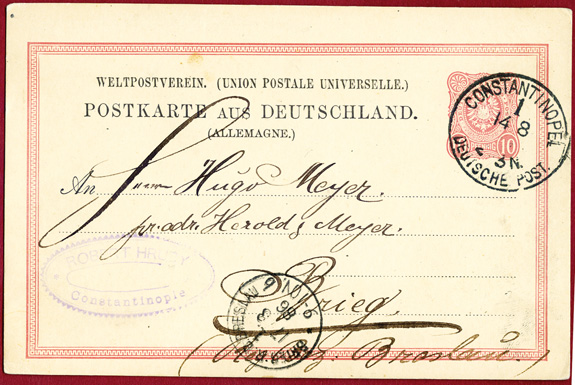 WELTPOSTVEREIN. (UNION POSTALE UNIVERSELLE.)
POSTKARTE AUS DEUTSCHLAND.
(ALLEMAGNE.)
10
CONSTANTINOPEL 1
14 8
3 N.
DEUTSCHE POST
An Herrn Hugo Meyer.
pr. adr. Herold & Meyer.
ROBERT HRUBY
Constantinople
Brieg.
BRESLAU
Breslau